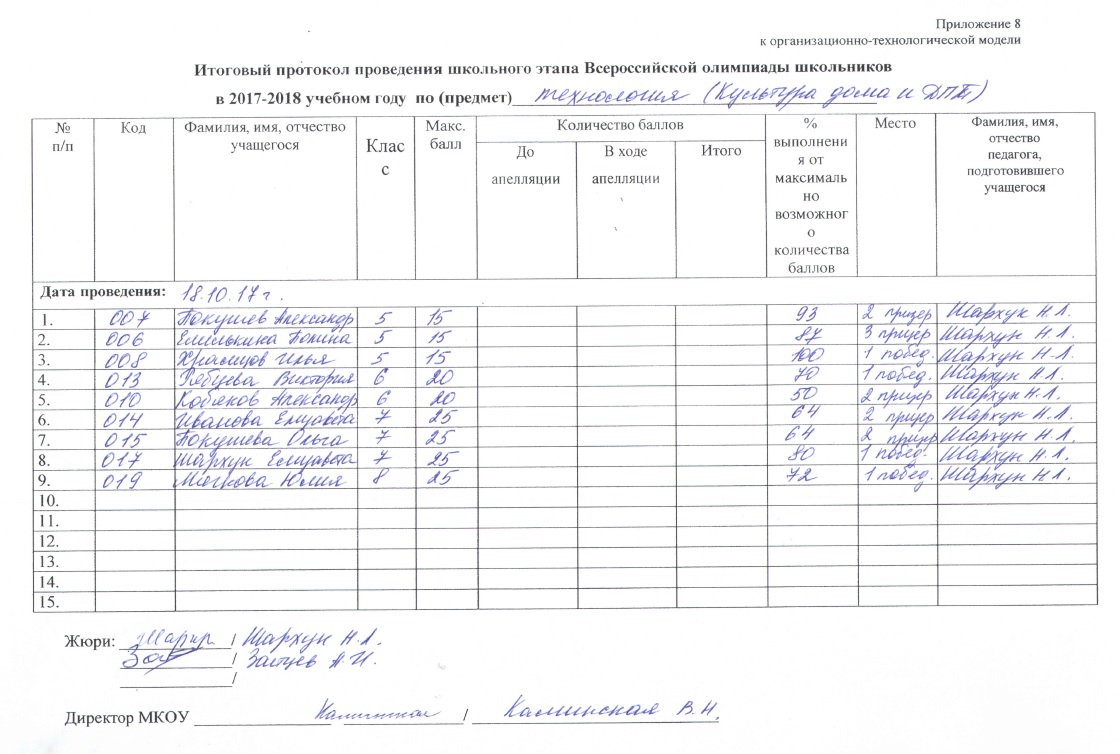 Приложение 8
к организационно-технологической модели
Итоговый протокол проведения школьного этапа Всероссийской олимпиады школьников
в 2017-2018 учебном году по (предмет) технология (Культура дома и ДПТ)
№ п/п Код Фамилия, имя, отчество учащегося Клас с Макс. балл Количество баллов До апелляции В ходе апелляции Итого % выполнени я от максималь но возможног о количества баллов Место Фамилия, имя, отчество педагога, подготовившего учащегося
Дата проведения: 18.10.17 г.
1. 007 Покушев Александр 5 15 93 2 призер Шархун Н.Л.
2. 006 Емелькина Полина 5 15 87 3 призер Шархун Н.Л.
3. 008 Храмцов Илья 5 15 100 1 побед. Шархун Н.Л.
4. 013 Рябцева Виктория 6 20 70 1 побед. Шархун Н.Л.
5. 010 Кобяков Александр 6 20 50 2 призер Шархун Н.Л.
6. 014 Иванова Елизавета 7 25 64 2 призер Шархун Н.Л.
7. 015 Покушева Ольга 7 25 64 2 призер Шархун Н.Л.
8. 017 Шархун Елизавета 7 25 80 1 побед. Шархун Н.Л.
9. 019 Мягкова Юлия 8 25 72 1 побед. Шархун Н.Л.
10.
11.
12.
13.
14.
15.
Жюри: / Шархун Н.Л.
/ Зайцев А.И.
/
Директор МКОУ / Каминская В.Н.